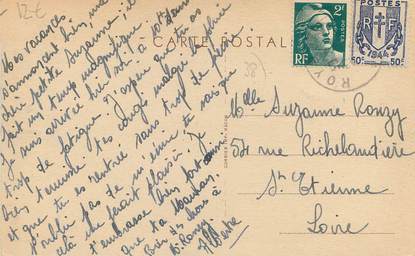 12€
CARTE POSTALE
2F
RF
POSTES
RF
50c
1944
50c
ROY
38
Mes vacances
s'annoncent bien, ma
chère petite Suzanne : il
fait un temps magnifique
je suis arrivée hier soir à
trop de fatigue. J'espère que tu as
bien terminé tes congés malgré
et que tu es rentrée sans trop de
n'oublie pas de m'écrire tu sais que
celà me ferait plaisir. Je
t'embrasse bien fort ainsi
que ta maman.
Bien des choses à
Mr Ronzy
Melle Suzanne Ronzy
54 rue Richelandière
St Etienne
Loire